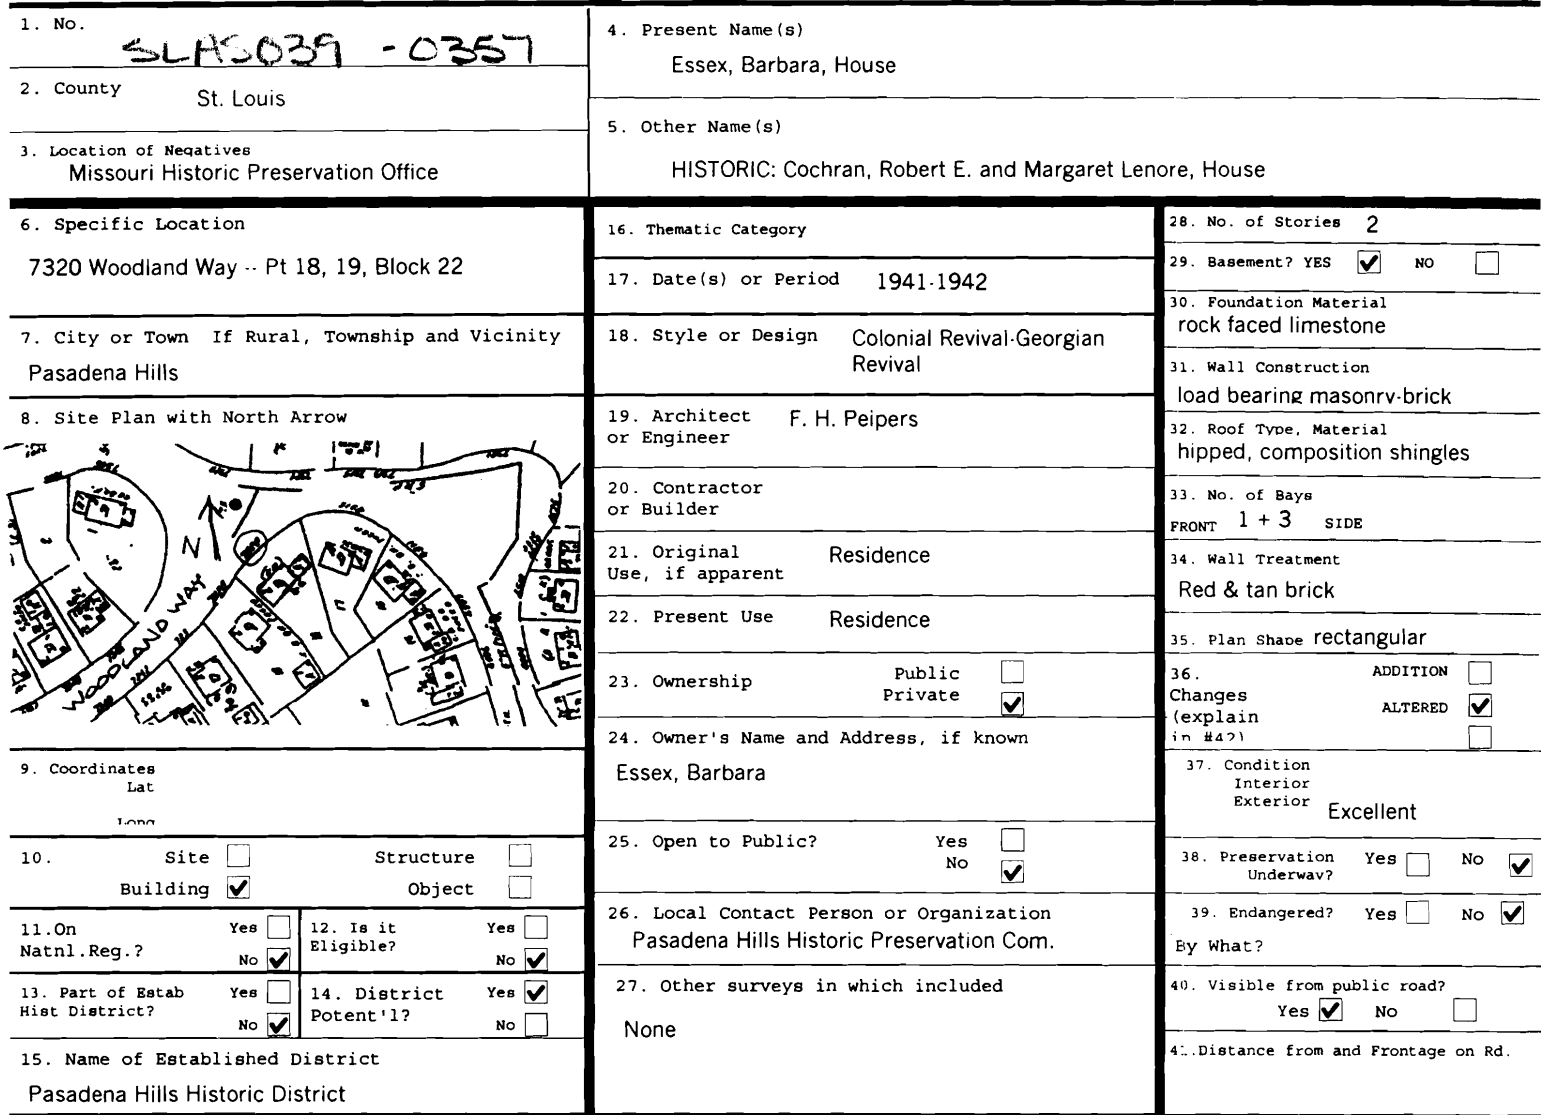 1. No.
SLAS039 -0357
2. County
St. Louis
3. Location of Negatives
Missouri Historic Preservation Office
4. Present Name(s)
Essex, Barbara, House
5. Other Name(s)
HISTORIC: Cochran, Robert E. and Margaret Lenore, House
6. Specific Location
7320 Woodland Way -- Pt 18, 19, Block 22
7. City or Town If Rural, Township and Vicinity
Pasadena Hills
8. Site Plan with North Arrow
N
WOODLAND WAY
9. Coordinates
Lat
Long
10. Site Structure
Building ✔ Object
11.On Yes
Natnl.Reg.? No ✔
12. Is it Yes
Eligible? No ✔
13. Part of Estab Yes
Hist District? No ✔
14. District Yes ✔
Potent'l? No
15. Name of Established District
Pasadena Hills Historic District
16. Thematic Category
17. Date(s) or Period 1941-1942
18. Style or Design Colonial Revival-Georgian
Revival
19. Architect F. H. Peipers
or Engineer
20. Contractor
or Builder
21. Original Residence
Use, if apparent
22. Present Use Residence
23. Ownership Public
Private ✔
24. Owner's Name and Address, if known
Essex, Barbara
25. Open to Public? Yes
No ✔
26. Local Contact Person or Organization
Pasadena Hills Historic Preservation Com.
27. Other surveys in which included
None
28. No. of Stories 2
29. Basement? YES ✔ NO
30. Foundation Material
rock faced limestone
31. Wall Construction
load bearing masonry-brick
32. Roof Type, Material
hipped, composition shingles
33. No. of Bays
FRONT 1 + 3 SIDE
34. Wall Treatment
Red & tan brick
35. Plan Shape rectangular
36. ADDITION
Changes
(explain ALTERED ✔
in #42)
37. Condition
Interior
Exterior Excellent
38. Preservation Yes No ✔
Underway?
39. Endangered? Yes No ✔
By What?
40. Visible from public road?
Yes ✔ No
41.Distance from and Frontage on Rd.